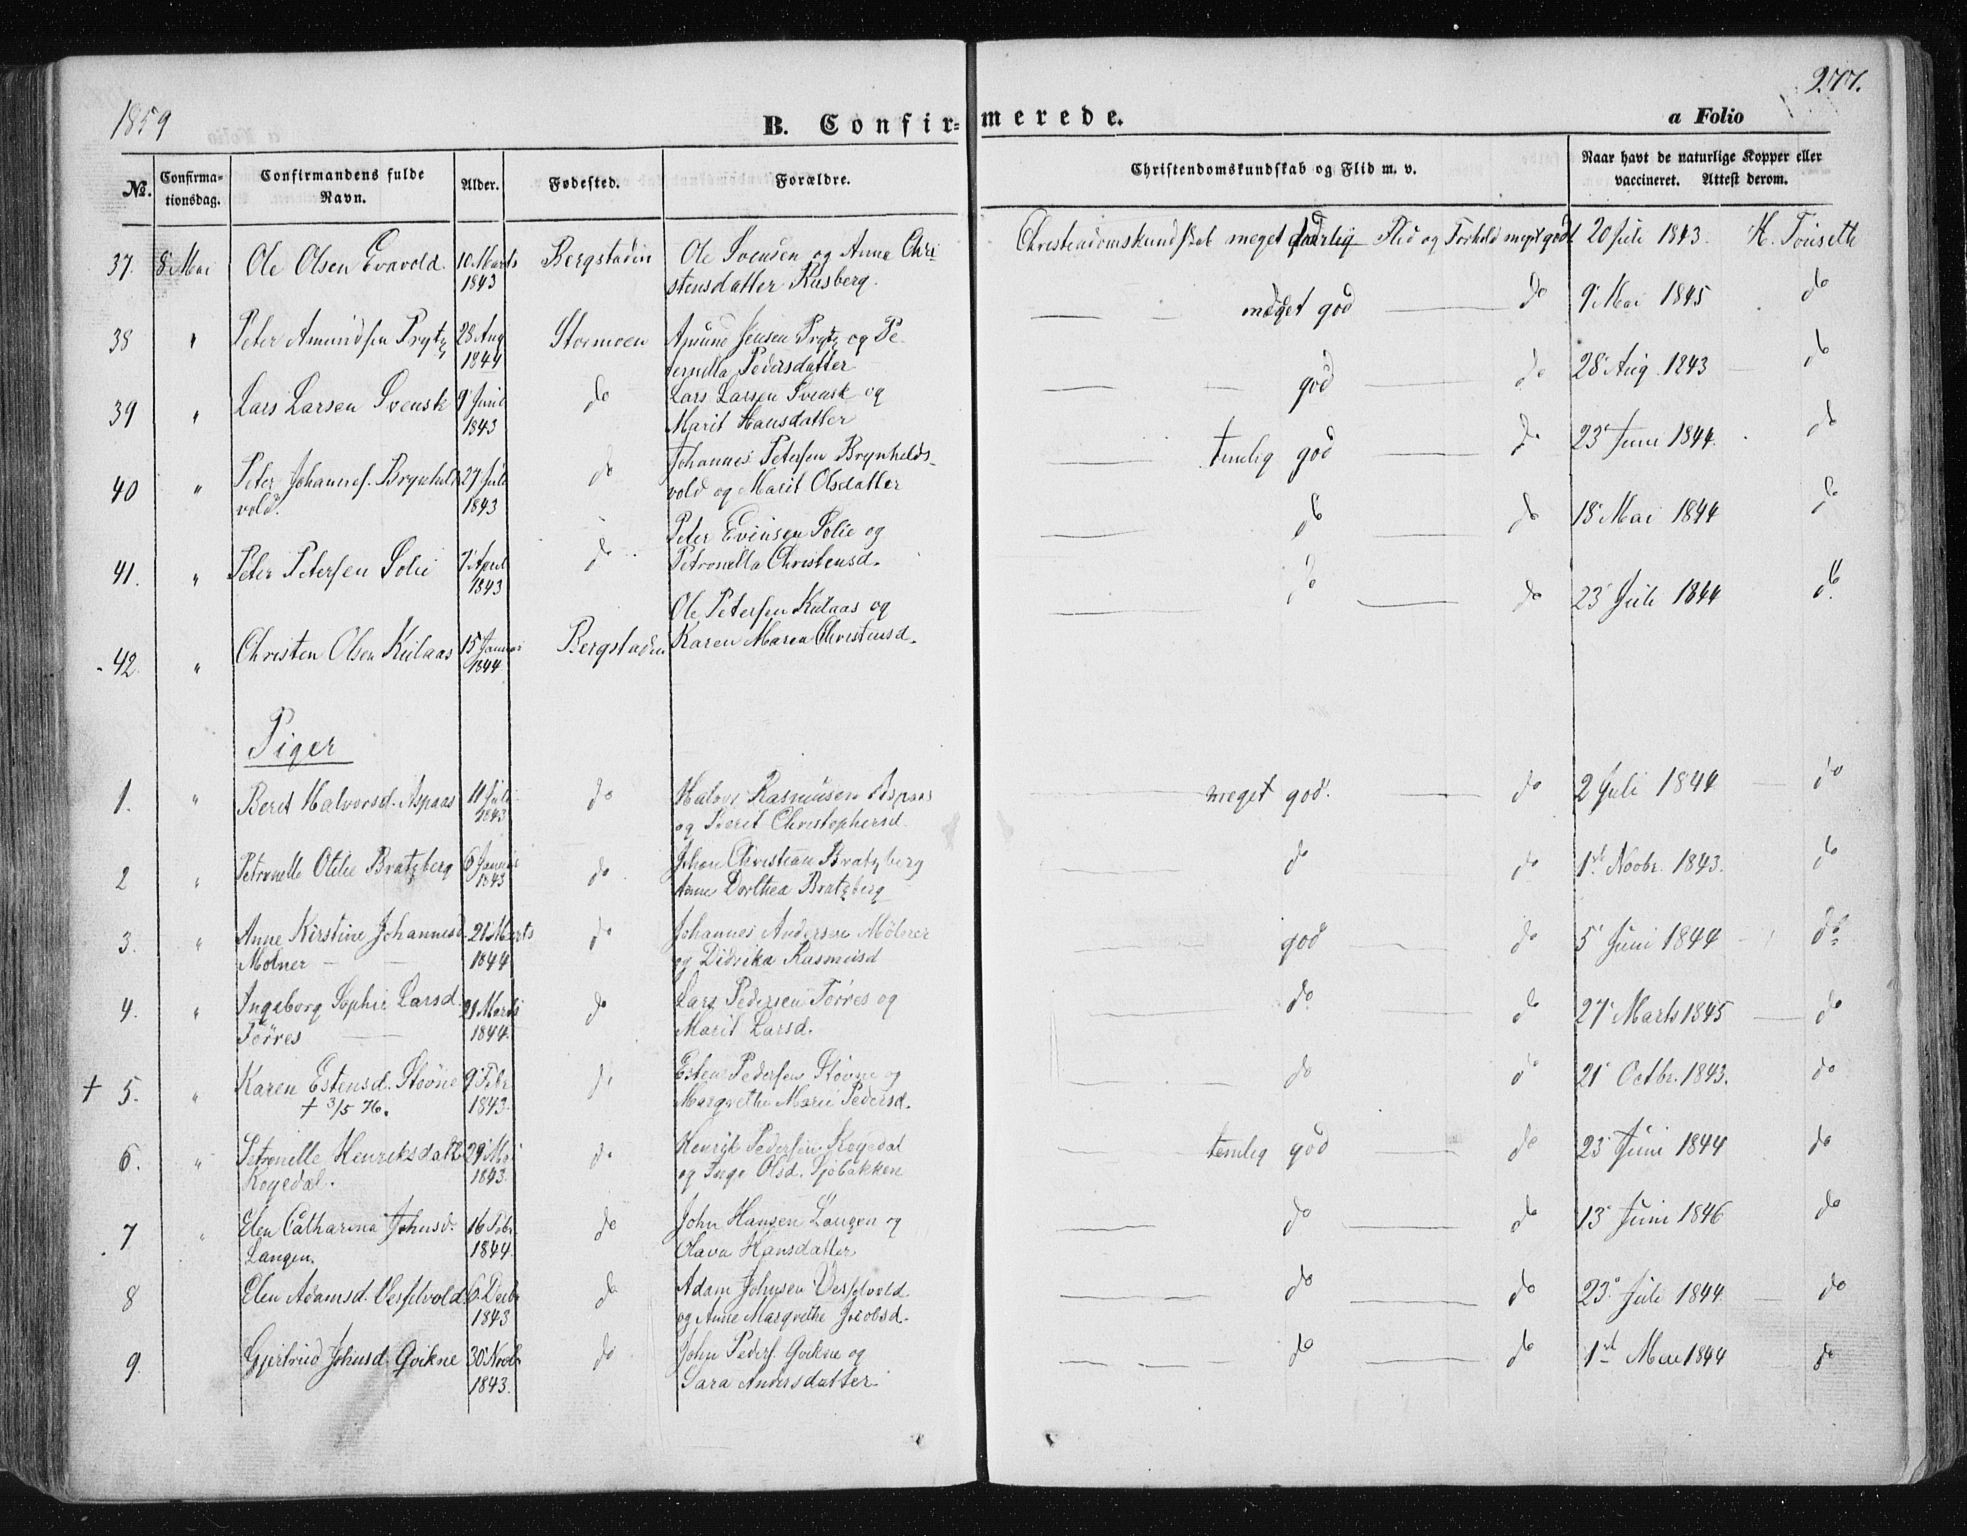 1859
277.
B. Confir=
merede.
a Folio
No.
Confirma-
tionsdag.
Confirmandens fulde
Navn.
Alder.
Fødested.
Forældre.
Christendomskundskab og Flid m. v.
Naar havt de naturlige Kopper eller
vaccineret. Attest derom.
37. 8 Mai Ole Olsen 10 Marts Bergstaden Ole Svensen og Anne Chri-
1843 stensdatter Rusberg.
Christendomskundskab meget Flid og Forhold meget godt 20 Juli 1843. H. Tonseth
38 " Peter Amundsen Prytz 28 Aug Stormoen Amund Jensen Prytz og Pe-
1844 ternella Pedersdatter
meget god do 9 Mai 1845 do
39 " Lars Larsen Svensk 9 Juni do Lars Larsen Svensk og
1843 Marit Hansdatter
god do 28 Aug. 1843 do
40 " Peter Johannes. Brynhilds 27 Juli do Johannes Petersen Brynhilds-
vold. 1843 vold og Marit Olsdatter
temlig god do 23 Juni 1844. do
41. " Peter Petersen Solie 7 April do Peter Evensen Solie og
1843 Petronella Christensd.
do do 18 Mai 1844 do
42. " Christen Olsen Kulaas 15 Januar Bergstaden Ole Petersen Kulaas og
1844 Karen Maren Christensd.
do do 23 Juli 1844 do
Piger
1. " Beret Halvorsd. Aspaas 11 Juli do Halvor Rasmusen Aspaas
1843 og Berit Christophersd.
meget god. do 2 Juli 1844 do
2 " Petronelle Otilie Bratzberg 6 Januar do Johan Christian Bratzberg
1843 Anne Dorthea Bratzberg
do do 1ste Novbr. 1843. do
3. " Anne Kirstine Johannesd. 21 Marts do Johannes Andersen Mølner
Mølner 1844 og Didrika Rasmusd
god do 5 Juni 1844 do
4. " Ingeborg Sophie Larsd. Marts do Lars Pedersen Tørres og
Tørres 1844. Marit Larsd.
do do 27 Marts 1845 do
† 5. " Karen Estensd. Støvne 9 Febr do Esten Pedersen Støvne og
† 3/5 76. 1843. Margrethe Marie Pedersd.
do do 21 Octbr. 1843. do
6. " Petronelle Henriksdatt 29 Mai do Henrik Pedersen Kogedal
Kogedal. 1843. og Inge Olsd. Sjøbakken
temlig god do 23 Juni 1844 do
7 " Elen Catharina Johnsd. 16 Febr. do John Hansen Langen og
Langen. 1844. Olava Hansdatter
do do 13 Juni 1846 do
8 Elen Adamsd. Vesselvold 6 Decbr do Adam Johnsen Vesselvold
1843 og Anne Margrethe Jacobsd.
do do 23 Juli 1844 do
9. Gjertrud Johnsd. Qvikne 30 Novb. do John Peders. Qvikne og
1843. Sara Andersdatter
do do 1ste Mai 1844 do